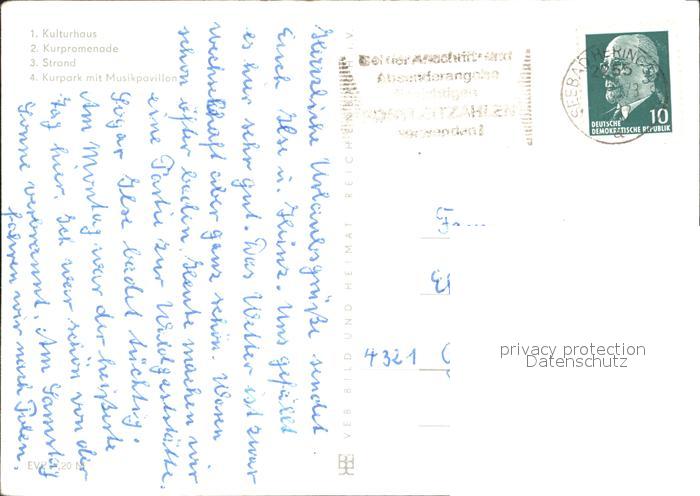 1. Kulturhaus
2. Kurpromenade
3. Strand
4. Kurpark mit Musikpavillon
Herzliche Urlaubsgrüße sendet
Euch Ilse u. Heinz. Uns gefällt
es hier sehr gut. Das Wetter ist zwar
wechselhaft aber ganz schön. Waren
schon öfter baden. Heute machen wir
eine Partie zur Waldgaststätte.
Sogar Ilse badet tüchtig.
Am Montag war der heißeste
Tag hier. Ich war schön von der
Sonne verbrannt. Am Samstag
fahren wir nach Polen.
VEB BILD UND HEIMAT REICHENBACH
Bei der Anschrift und
Absenderangabe
SEEBAD HERINGSDORF
2255
10
DEUTSCHE
DEMOKRATISCHE REPUBLIK
4321
privacy protection
Datenschutz